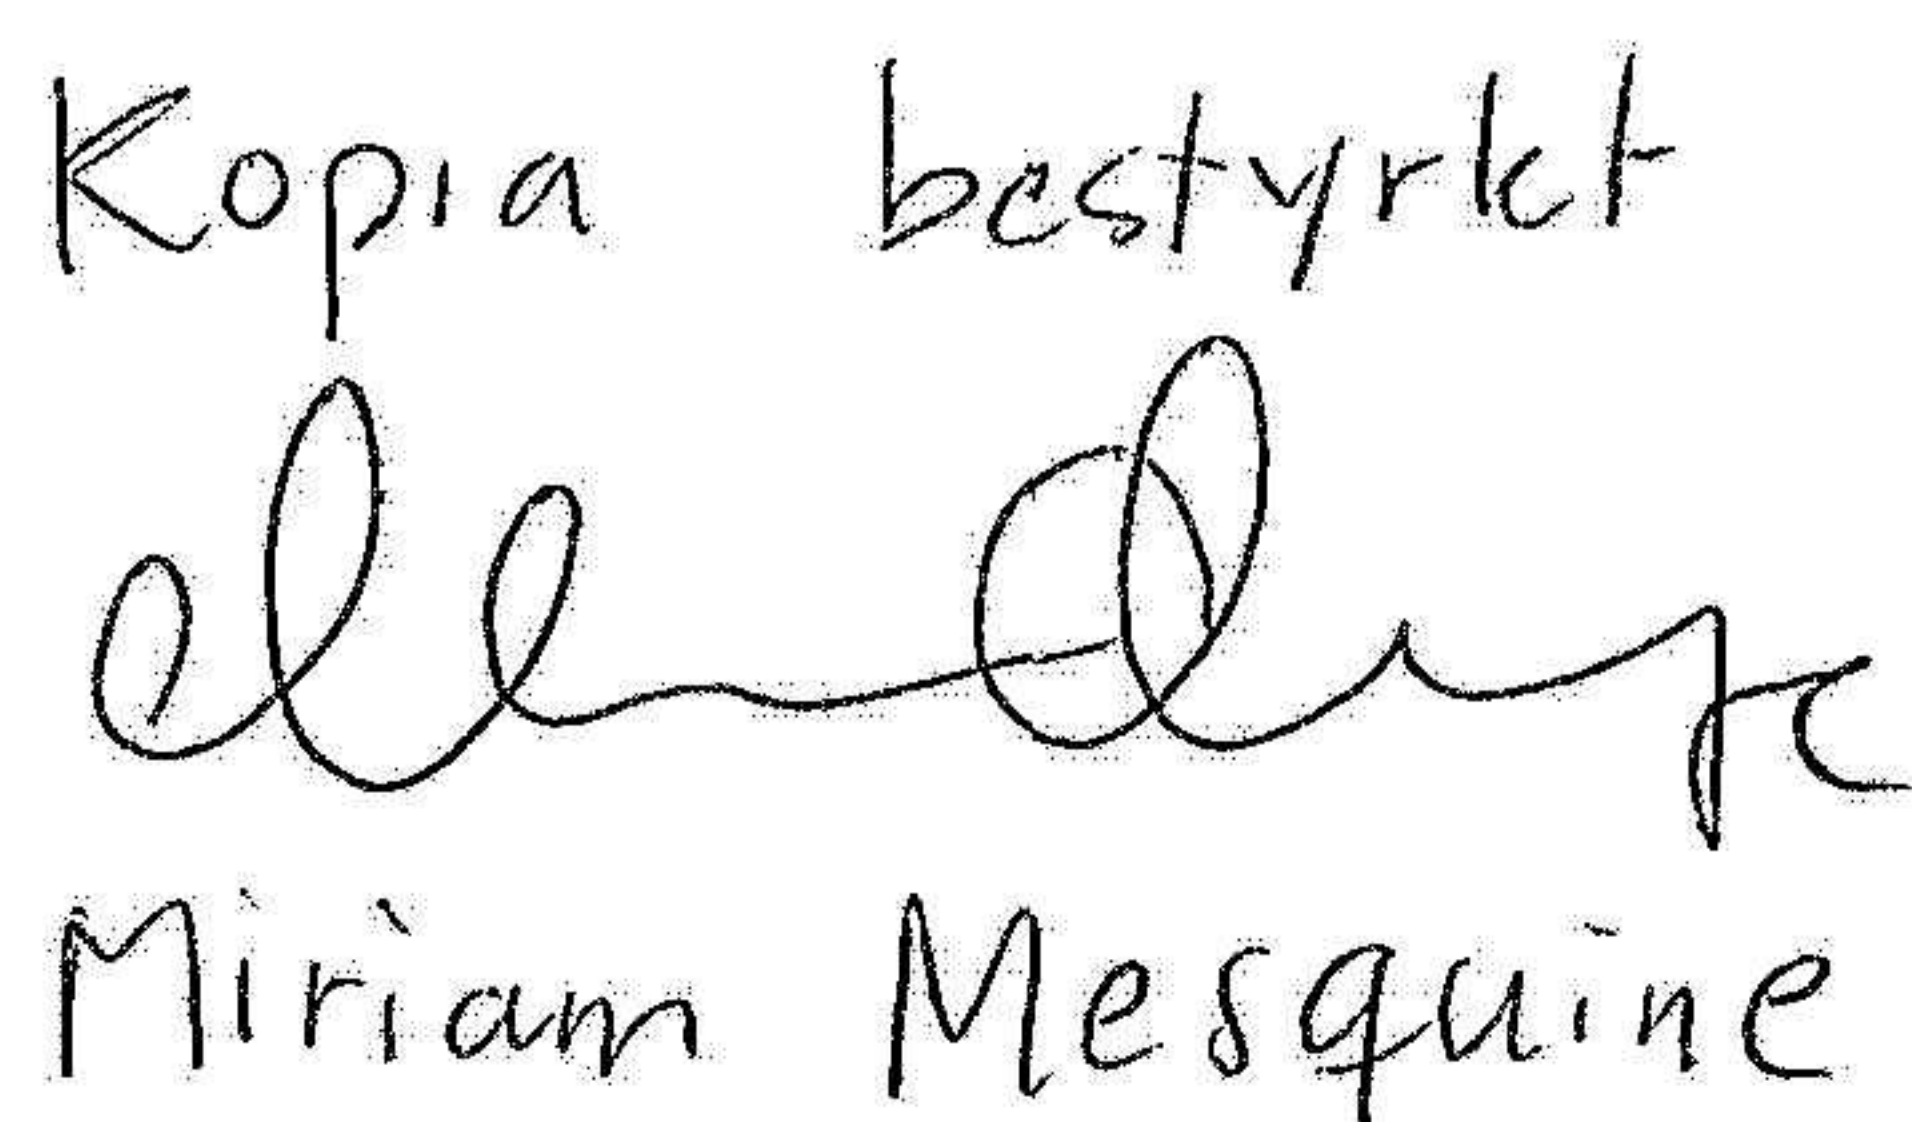 Kopia bestyrkt
Miriam Mesquine